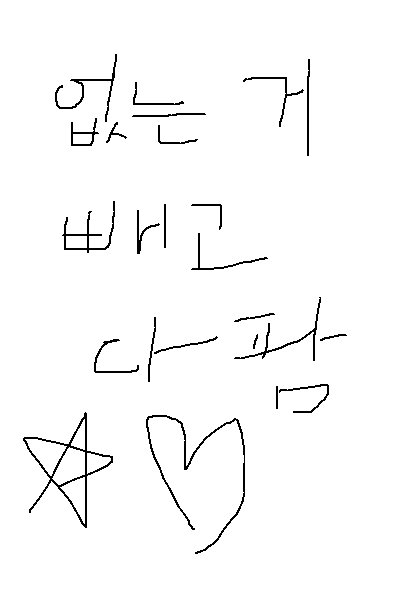 없는 거
빼고
다 팜